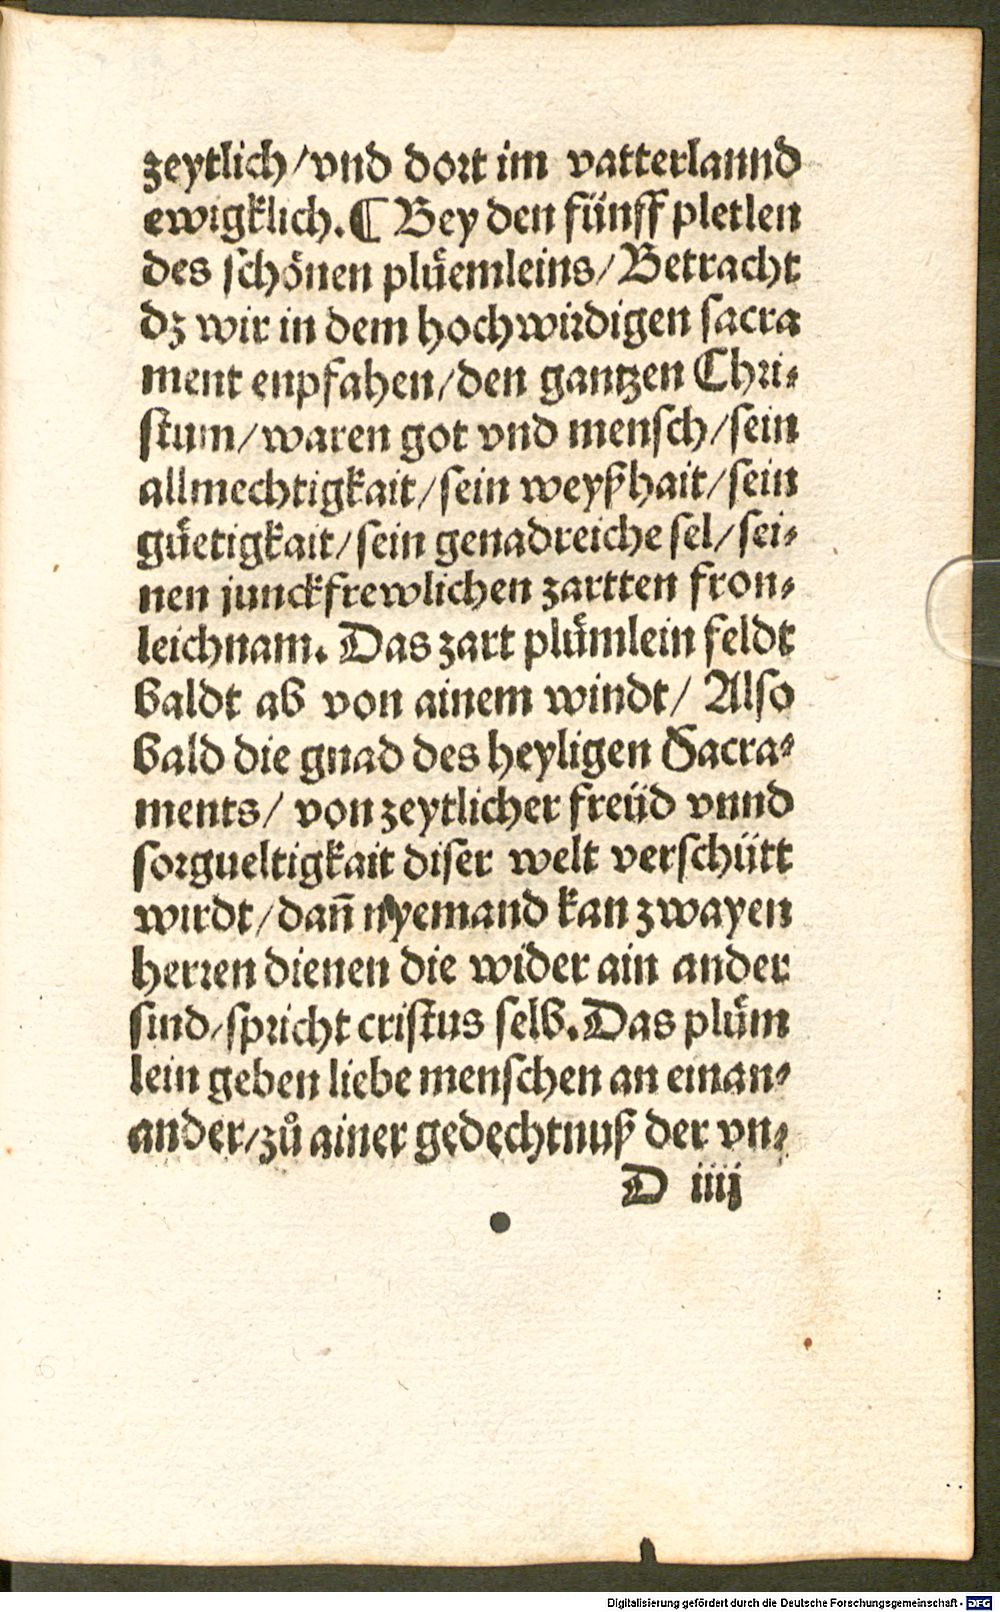 zeytlich/vnd dort im vatterlannd
ewigklich.¶ Bey den fünff pletlen
des schönen plůemleins/Betracht
dz wir in dem hochwirdigen sacra
ment enpfahen/den gantzen Chri-
stum/waren got vnd mensch/sein
allmechtigkait/sein weyßhait/sein
gůetigkait/sein genadreiche sel/sei-
nen junckfrewlichen zartten fron-
leichnam. Das zart plůmlein feldt
baldt ab von ainem windt/ Also
bald die gnad des heyligen Sacra-
ments/ von zeytlicher freüd vnnd
sorgueltigkait diser welt verschütt
wirdt/dañ nyemand kan zwayen
herren dienen die wider ain ander
sind/spricht cristus selb.Das plům
lein geben liebe menschen an einan-
ander/zů ainer gedechtnuß der vn-
D iiij
Digitalisierung gefördert durch die Deutsche Forschungsgemeinschaft - DFG